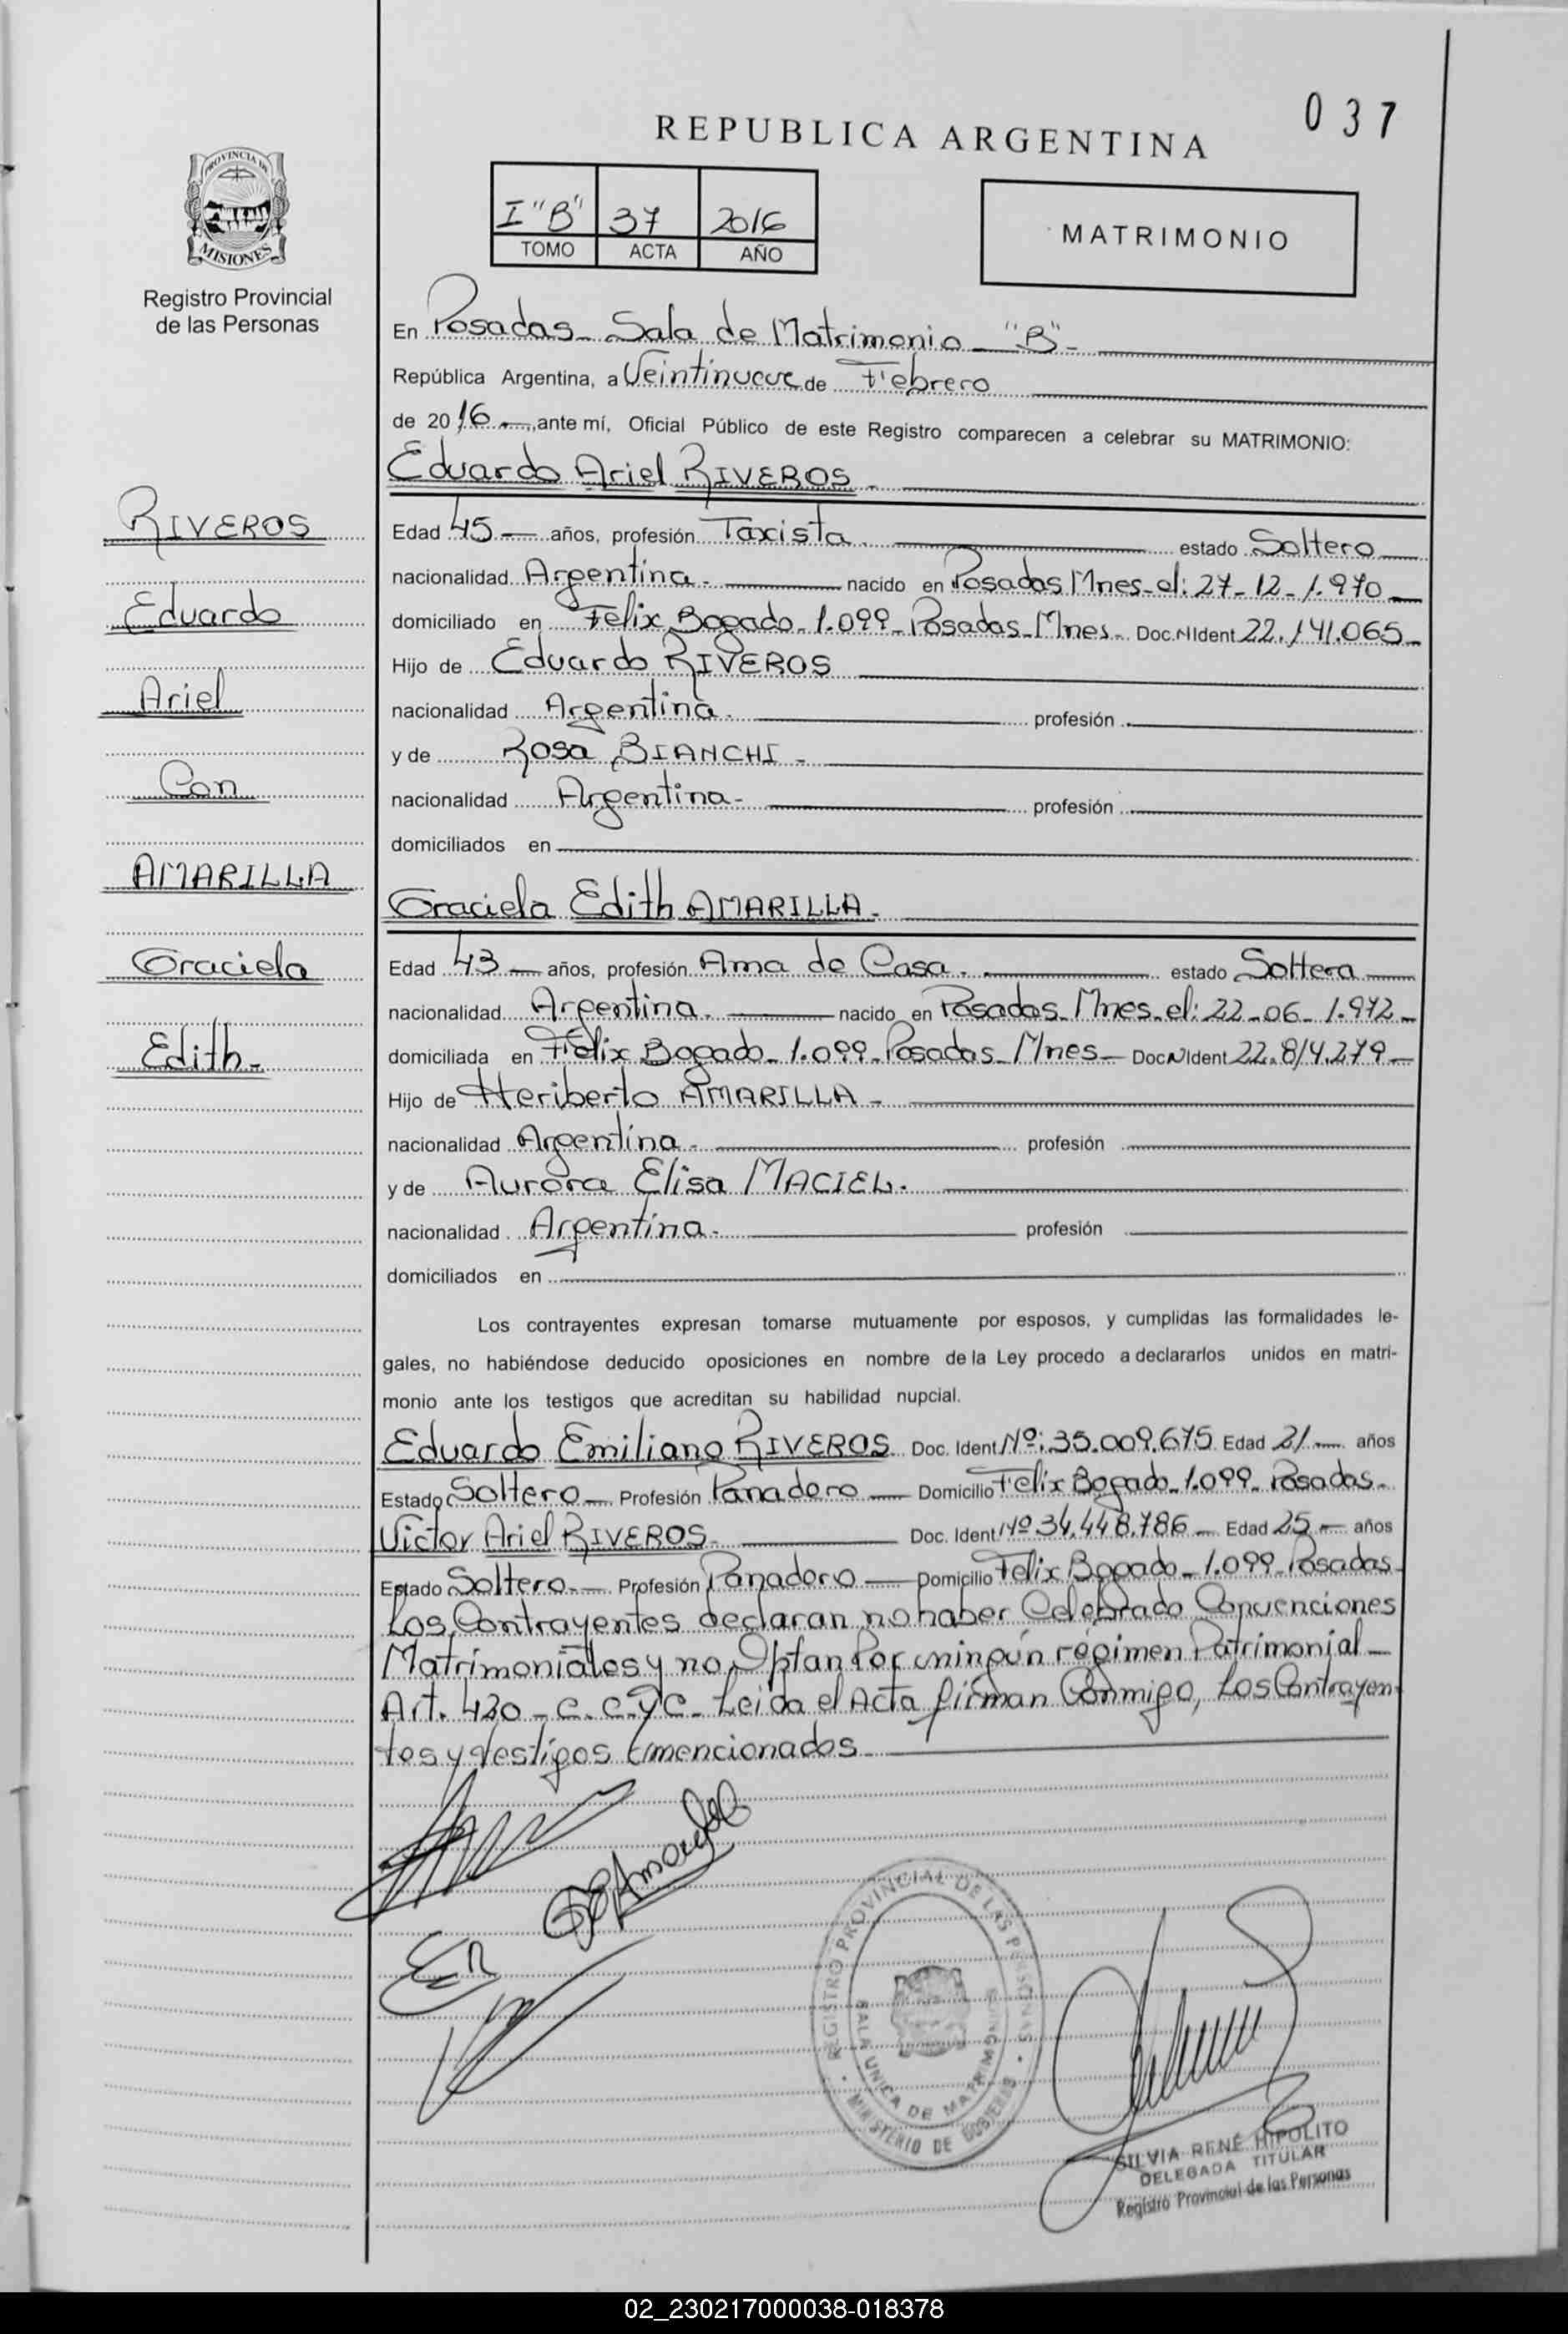 037
REPUBLICA ARGENTINA
PROVINCIA DE
MISIONES
Registro Provincial
de las Personas
I "B" 37 2016
TOMO ACTA AÑO
MATRIMONIO
En Posadas - Sala de Matrimonio - "B" -
República Argentina, a Veintinueve de Febrero
de 2016 -, ante mí, Oficial Público de este Registro comparecen a celebrar su MATRIMONIO:
Eduardo Ariel RIVEROS -
RIVEROS
Eduardo
Ariel
Con
AMARILLA
Graciela
Edith -
Edad 45 - años, profesión Taxista. estado Soltero
nacionalidad Argentina - nacido en Posadas Mnes - el: 27 - 12 - 1.970 -
domiciliado en Felix Bogado - 1.099 - Posadas - Mnes - Doc. N Ident 22.141.065 -
Hijo de Eduardo RIVEROS
nacionalidad Argentina - profesión
y de Rosa BIANCHI -
nacionalidad Argentina - profesión
domiciliados en
Graciela Edith AMARILLA -
Edad 43 - años, profesión Ama de Casa. estado Soltera
nacionalidad Argentina. nacido en Posadas Mnes - el: 22 - 06 - 1.972 -
domiciliada en Felix Bogado - 1.099 - Posadas - Mnes - Doc N Ident 22.814.279 -
Hijo de Heriberto AMARILLA -
nacionalidad Argentina - profesión
y de Aurora Elisa MACIEL.
nacionalidad Argentina - profesión
domiciliados en
Los contrayentes expresan tomarse mutuamente por esposos, y cumplidas las formalidades le-
gales, no habiéndose deducido oposiciones en nombre de la Ley procedo a declararlos unidos en matri-
monio ante los testigos que acreditan su habilidad nupcial.
Eduardo Emiliano RIVEROS Doc. Ident Nº: 35.009.675 Edad 21 - años
Estado Soltero - Profesión Panadero - Domicilio Felix Bogado - 1.099 - Posadas -
Victor Ariel RIVEROS - Doc. Ident Nº 34.448.786 - Edad 25 - años
Estado Soltero - Profesión Panadero - Domicilio Felix Bogado - 1.099 - Posadas -
Los Contrayentes declaran no haber Celebrado Convenciones
Matrimoniales y no Optan Por ningún régimen Patrimonial -
Art. 420 - C. C. y C - Leida el Acta firman Conmigo, Los Contrayen-
tes y testigos mencionados
REGISTRO PROVINCIAL DE LAS PERSONAS
SALA UNICA DE MATRIMONIOS
MINISTERIO DE GOBIERNO
SILVIA RENÉ HIPOLITO
DELEGADA TITULAR
Registro Provincial de las Personas
02_230217000038-018378